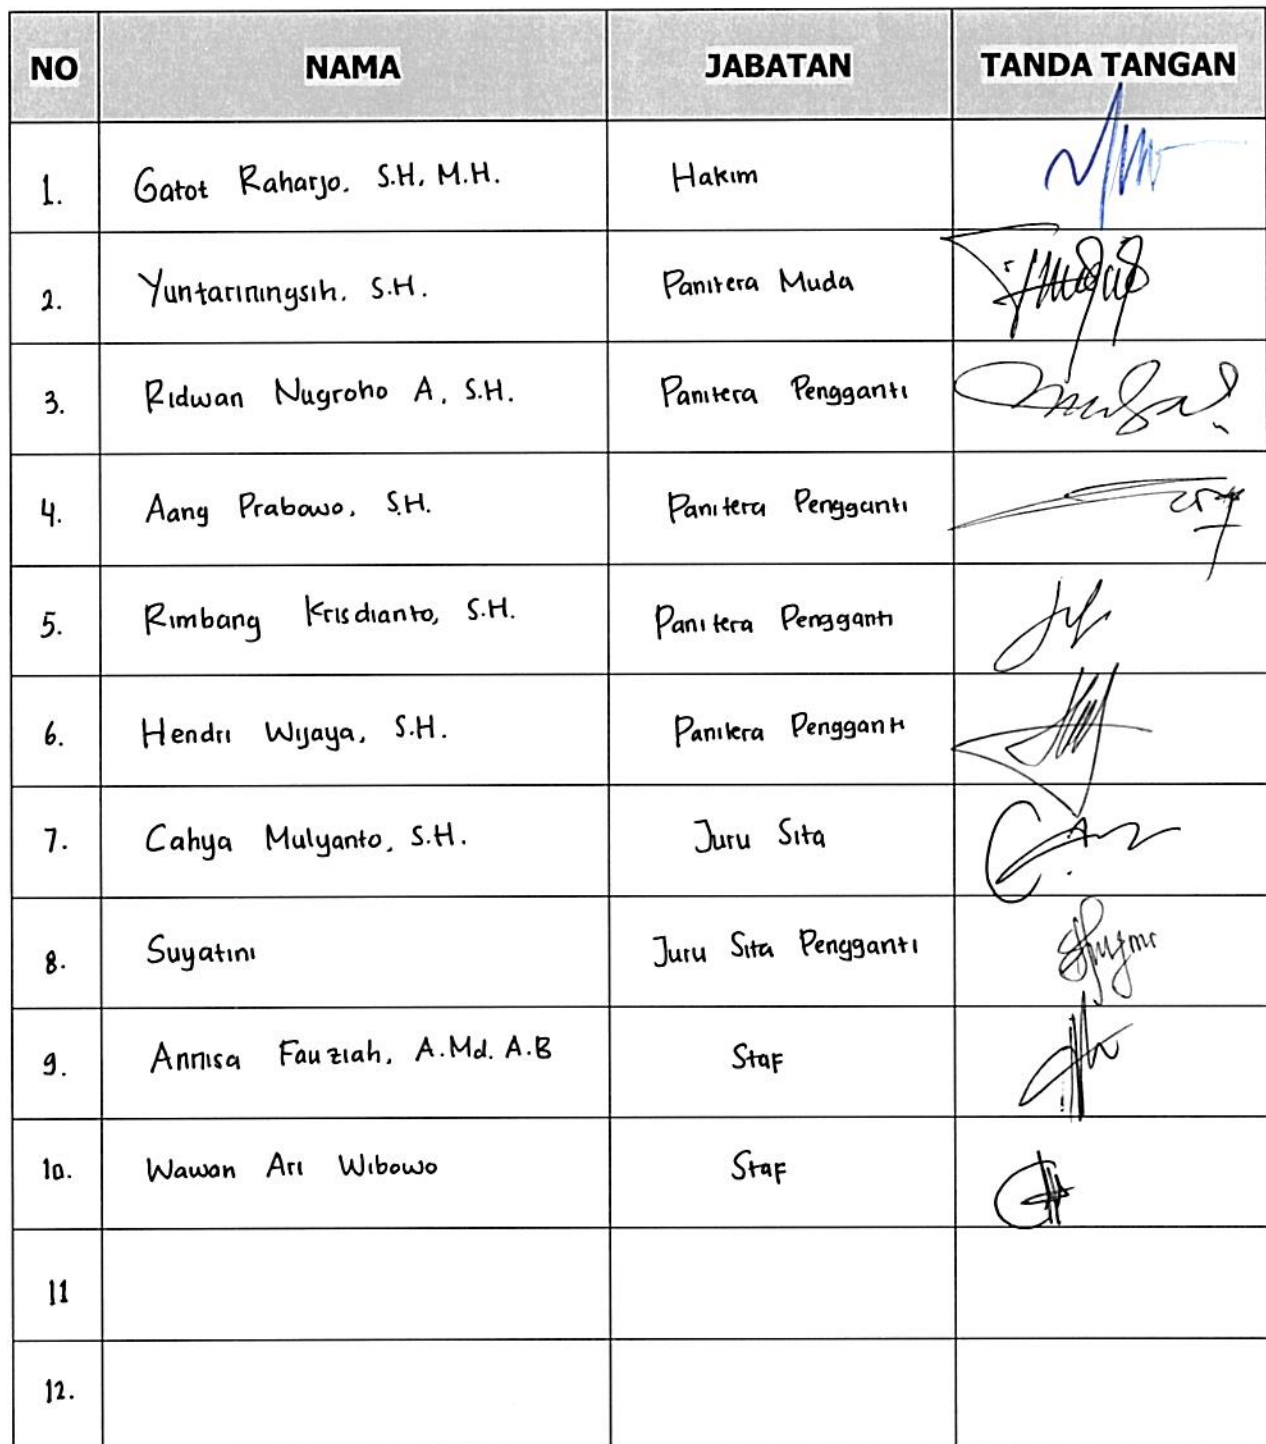 NO NAMA JABATAN TANDA TANGAN
1. Gatot Raharjo. S.H. M.H. Hakim
2. Yuntariningsih. S.H. Panitera Muda
3. Ridwan Nugroho A, S.H. Panitera Pengganti
4. Aang Prabowo, S.H. Panitera Pengganti
5. Rimbang Krisdianto, S.H. Panitera Pengganti
6. Hendri Wijaya, S.H. Panitera Pengganti
7. Cahya Mulyanto, S.H. Juru Sita
8. Suyatini Juru Sita Pengganti
9. Annisa Fauziah, A.Md. A.B Staf
10. Wawan Ari Wibowo Staf
11
12.